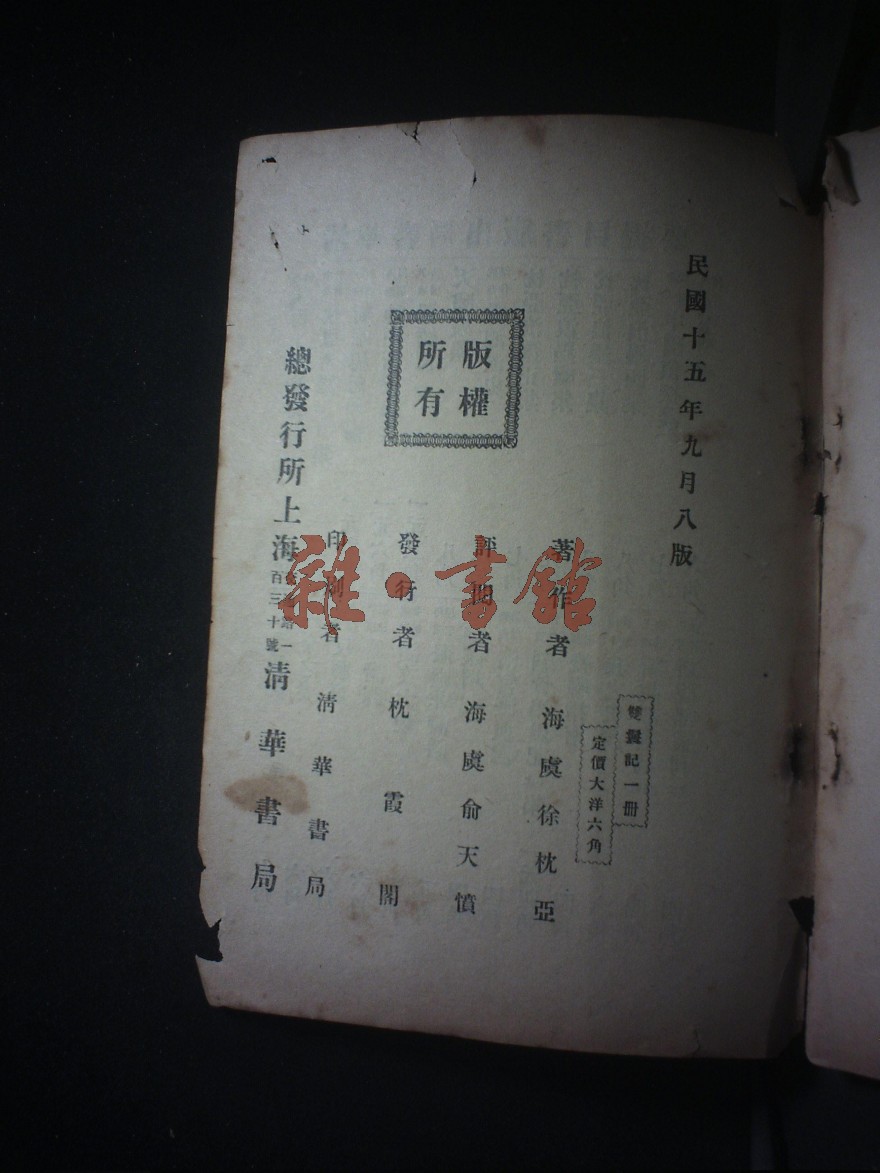 民國十五年九月八版
雙鬟記一冊
定價大洋六角
著作者 海虞徐枕亞
評閱者 海虞俞天憤
發行者 枕霞閣
印刷者 清華書局
版權
所有
總發行所上海
路一
百三十號
清華書局
雜·書館